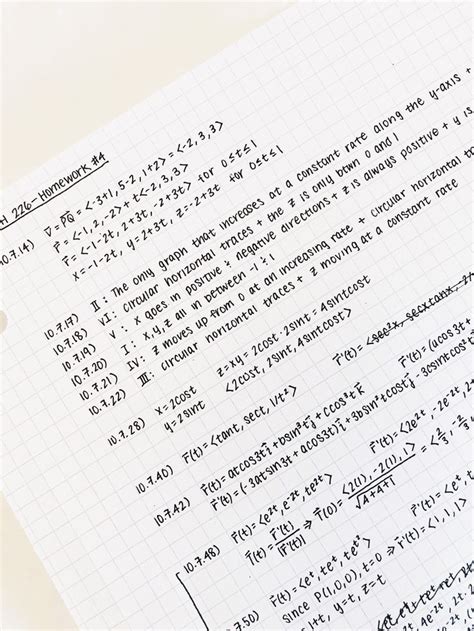 H 226-Homework #4
0.7.14) v̄ = P̄Q̄ = <-3+1, 5-2, 1+2> = <-2,3,3>
r̄ = <-1,2,-2> + t<-2,3,3>
r̄ = <-1-2t, 2+3t, -2+3t> for 0≤t≤1
x=-1-2t, y=2+3t, z=-2+3t for 0≤t≤1
10.7.17) II: The only graph that increases at a constant rate along the y-axis +
10.7.18) VI: circular horizontal traces + the z is only btwn 0 and 1
10.7.19) V: x goes in positive & negative directions + z is always positive + y is
10.7.20) I: x,y,z all in between -1 & 1
10.7.21) IV: z moves up from 0 at an increasing rate + circular horizontal to
10.7.22) III: circular horizontal traces + z moving at a constant rate
10.7.28) x=2cost z=xy=2cost·2sint=4sintcost
y=2sint <2cost, 2sint, 4sintcost>
10.7.40) r̄(t)=<tant, sect, 1/t²> r̄'(t)=<sec²x, secxtanx,
10.7.42) r̄(t)=atcos3t î+bsin³t ĵ+ccos³t k̂ r̄'(t)=(acos3t
r̄'(t)=(-3atsin3t+acos3t)î+3bsin²tcost ĵ-3csintcos²t
10.7.48) r̄(t)=<e²ᵗ, e⁻²ᵗ, te²ᵗ> r̄'(t)=<2e²ᵗ, -2e⁻²ᵗ,
T̄(t)= r̄'(t)/|r̄'(t)| ⇒ T̄(0)= <2(1), -2(1), 1>/√4+4+1 = <2/3, -2/3,
.7.50) r̄(t)=<eᵗ, teᵗ, te^t²> r̄'(t)=<eᵗ, t
since P(1,0,0), t=0 ⇒ r̄'(t)=<1,1,1>
1+t, y=t, z=t